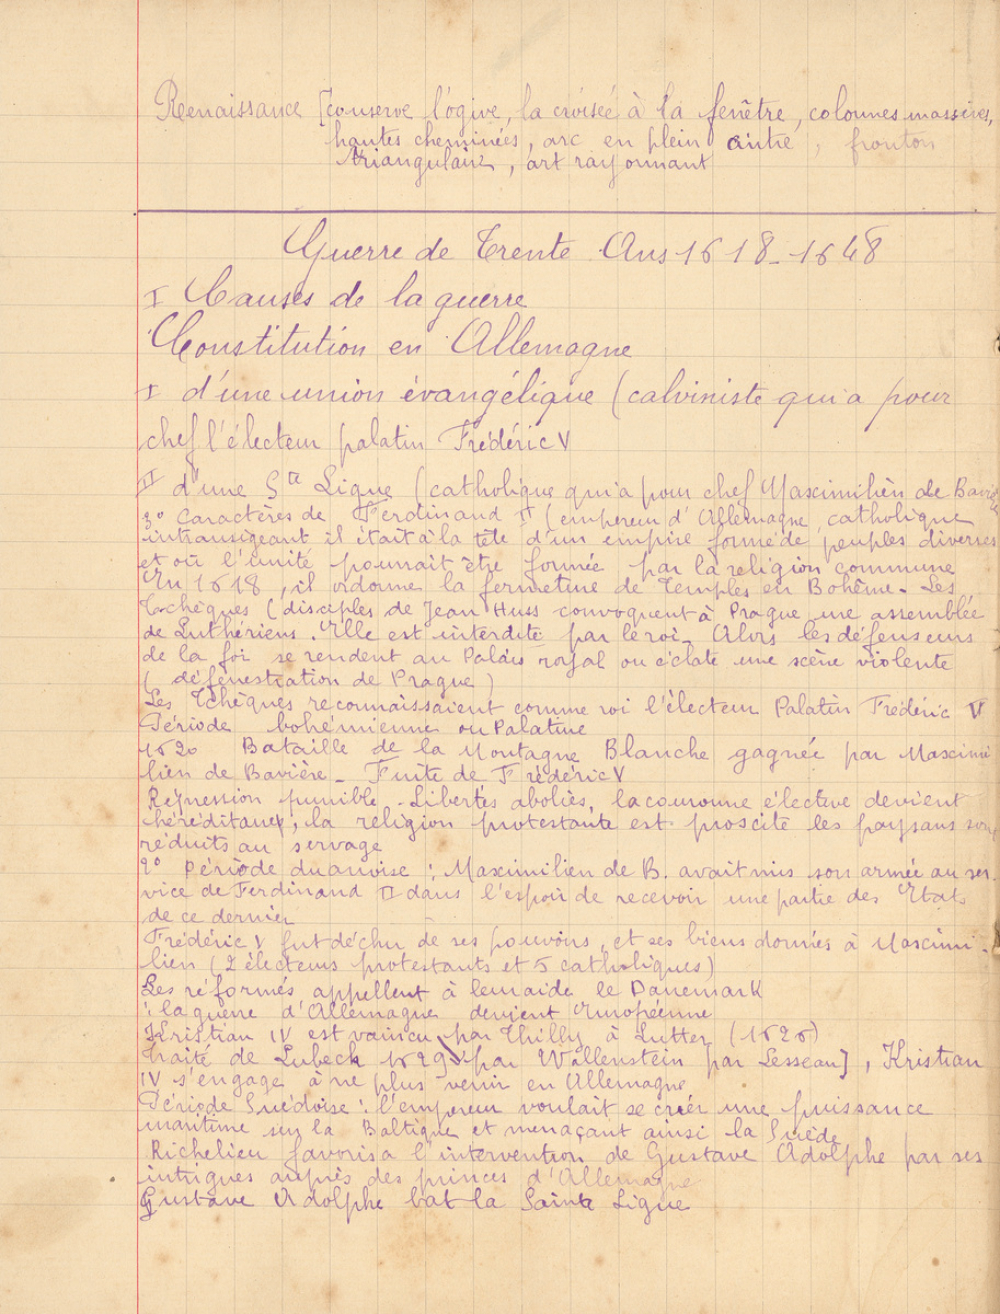 Renaissance [conserve l'ogive, la croisée à la fenêtre, colonnes massives,
hautes cheminées, arc en plein cintre, fronton
triangulaire, art rayonnant
Guerre de Trente Ans 1618-1648
I Causes de la guerre
Constitution en Allemagne
I d'une union évangélique (calviniste qui a pour
chef l'électeur palatin Frédéric V
II d'une Ste Ligue (catholique qui a pour chef Maximilien de Bavière
3° Caractères de Ferdinand II (empereur d'Allemagne, catholique
intransigeant il était à la tête d'un empire formé de peuples diverses
et où l'unité pouvait être formée par la religion commune
En 1618, il ordonne la fermeture de Temples en Bohême. Les
Tchèques (disciples de Jean Huss convoquent à Prague une assemblée
de Luthériens. Elle est interdite par le roi. Alors les défenseurs
de la foi se rendent au Palais royal ou éclate une scène violente
(défenestration de Prague)
Les Tchèques reconnaissaient comme roi l'électeur Palatin Frédéric V
Période bohémienne ou Palatine
1620 Bataille de la Montagne Blanche gagnée par Maximi
lien de Bavière - Fuite de Frédéric V
Répression punible. Libertés abolies, la couronne élective devient
héréditaire, la religion protestante est proscite les paysans son
réduits au servage
2° Période danoise : Maximilien de B. avait mis son armée au ser-
vice de Ferdinand II dans l'espoir de recevoir une partie des Etats
de ce dernier
Frédéric V fut déchu de ses pouvoirs, et ses biens donnés à Maximi-
lien (2 électeurs protestants et 5 catholiques)
Les réformés appellent à leur aide le Danemark
: la guerre d'Allemagne devient Européenne
Kristian IV est vaincu par Thilly à Lutter (1626)
Traité de Lubeck 1629 par Wallenstein [par Lesseau], Kristian
IV s'engage à ne plus venir en Allemagne
Période Suédoise : l'empereur voulait se créer une puissance
maritime sur la Baltique et menaçant ainsi la Suède
Richelieu favorisa l'intervention de Gustave Adolphe par ses
intrigues auprès des princes d'Allemagne
Gustave Adolphe bat la Sainte Ligue